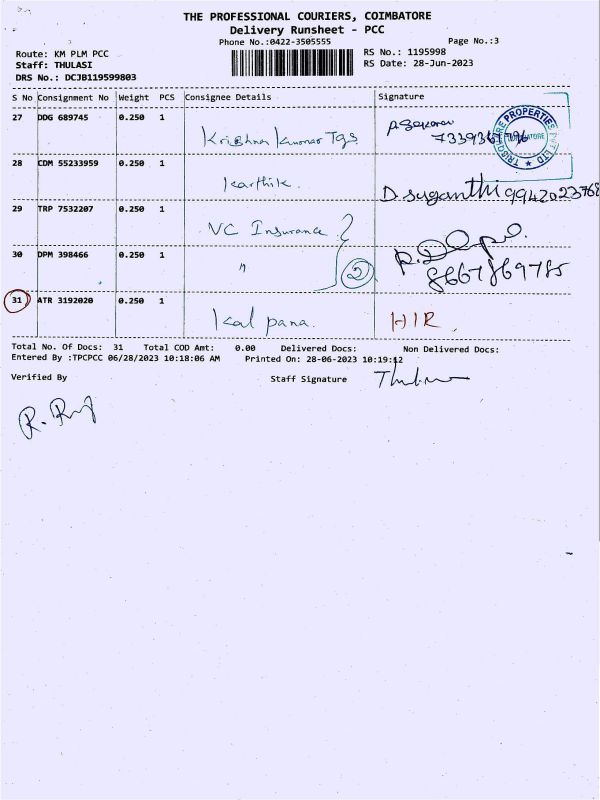 THE PROFESSIONAL COURIERS, COIMBATORE
Delivery Runsheet - PCC
Phone No.:0422-3505555
Page No.:3
Route: KM PLM PCC
Staff: THULASI
DRS No.: DCJB119599803
RS No.: 1195998
RS Date: 28-Jun-2023
S No Consignment No Weight PCS Consignee Details Signature
27 DDG 689745 0.250 1
Krishna Kumar Tgs
7339367796
TRISQUARE PROPERTIES PVT LTD
COIMBATORE
28 CDM 55233959 0.250 1
Karthik.
D. Suganthi 9942023768
29 TRP 7532207 0.250 1
VC Insurance
30 DPM 398466 0.250 1
"
2
8667869785
31 ATR 3192020 0.250 1
Kalpana.
HIR.
Total No. Of Docs: 31 Total COD Amt: 0.00 Delivered Docs: Non Delivered Docs:
Entered By :TPCPCC 06/28/2023 10:18:06 AM Printed On: 28-06-2023 10:19:12
Verified By
Staff Signature